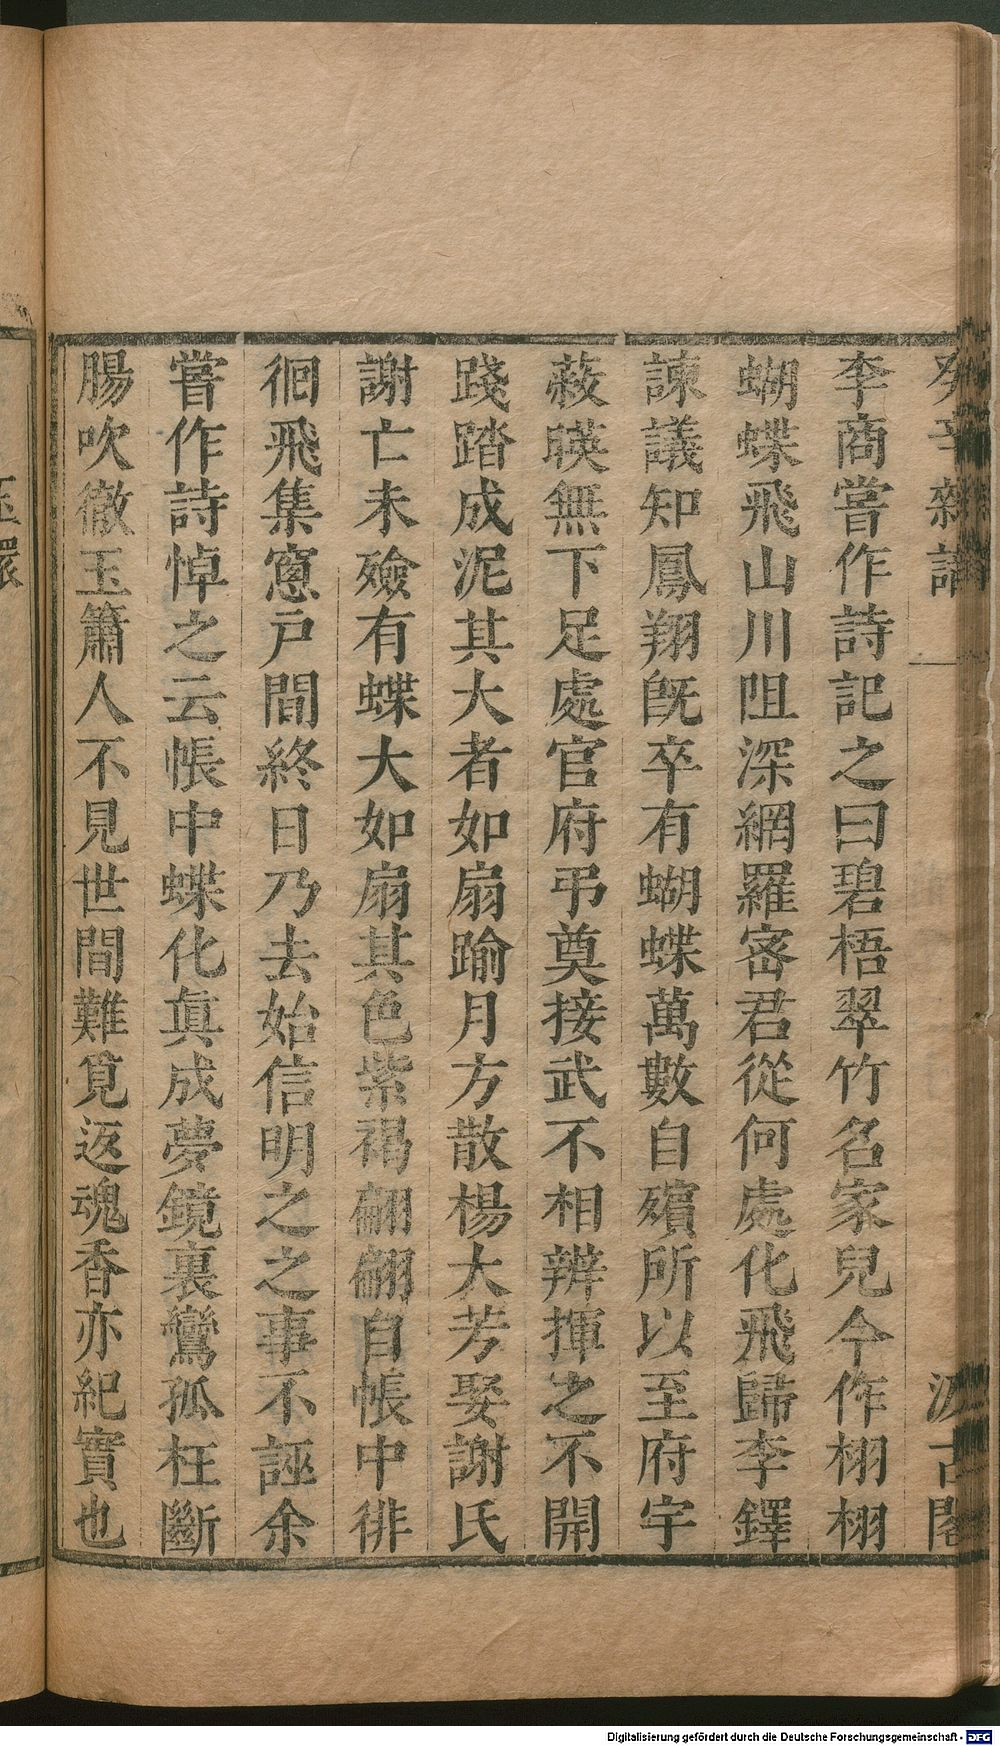 癸辛雜識
汲古閣
李商嘗作詩記之曰碧梧翠竹名家兒今作栩栩
蝴蝶飛山川阻深網羅密君從何處化飛歸李鐸
諫議知鳳翔旣卒有蝴蝶萬數自殯所以至府宇
蔽暎無下足處官府弔奠接武不相辨揮之不開
踐踏成泥其大者如扇踰月方散楊大芳娶謝氏
謝亡未殮有蝶大如扇其色紫褐翩翩自帳中徘
徊飛集窻戸間終日乃去始信明之之事不誣余
嘗作詩悼之云帳中蝶化眞成夢鏡裏鸞孤枉斷
腸吹徹玉簫人不見世間難覓返魂香亦紀實也
玉環
Digitalisierung gefördert durch die Deutsche Forschungsgemeinschaft - DFG